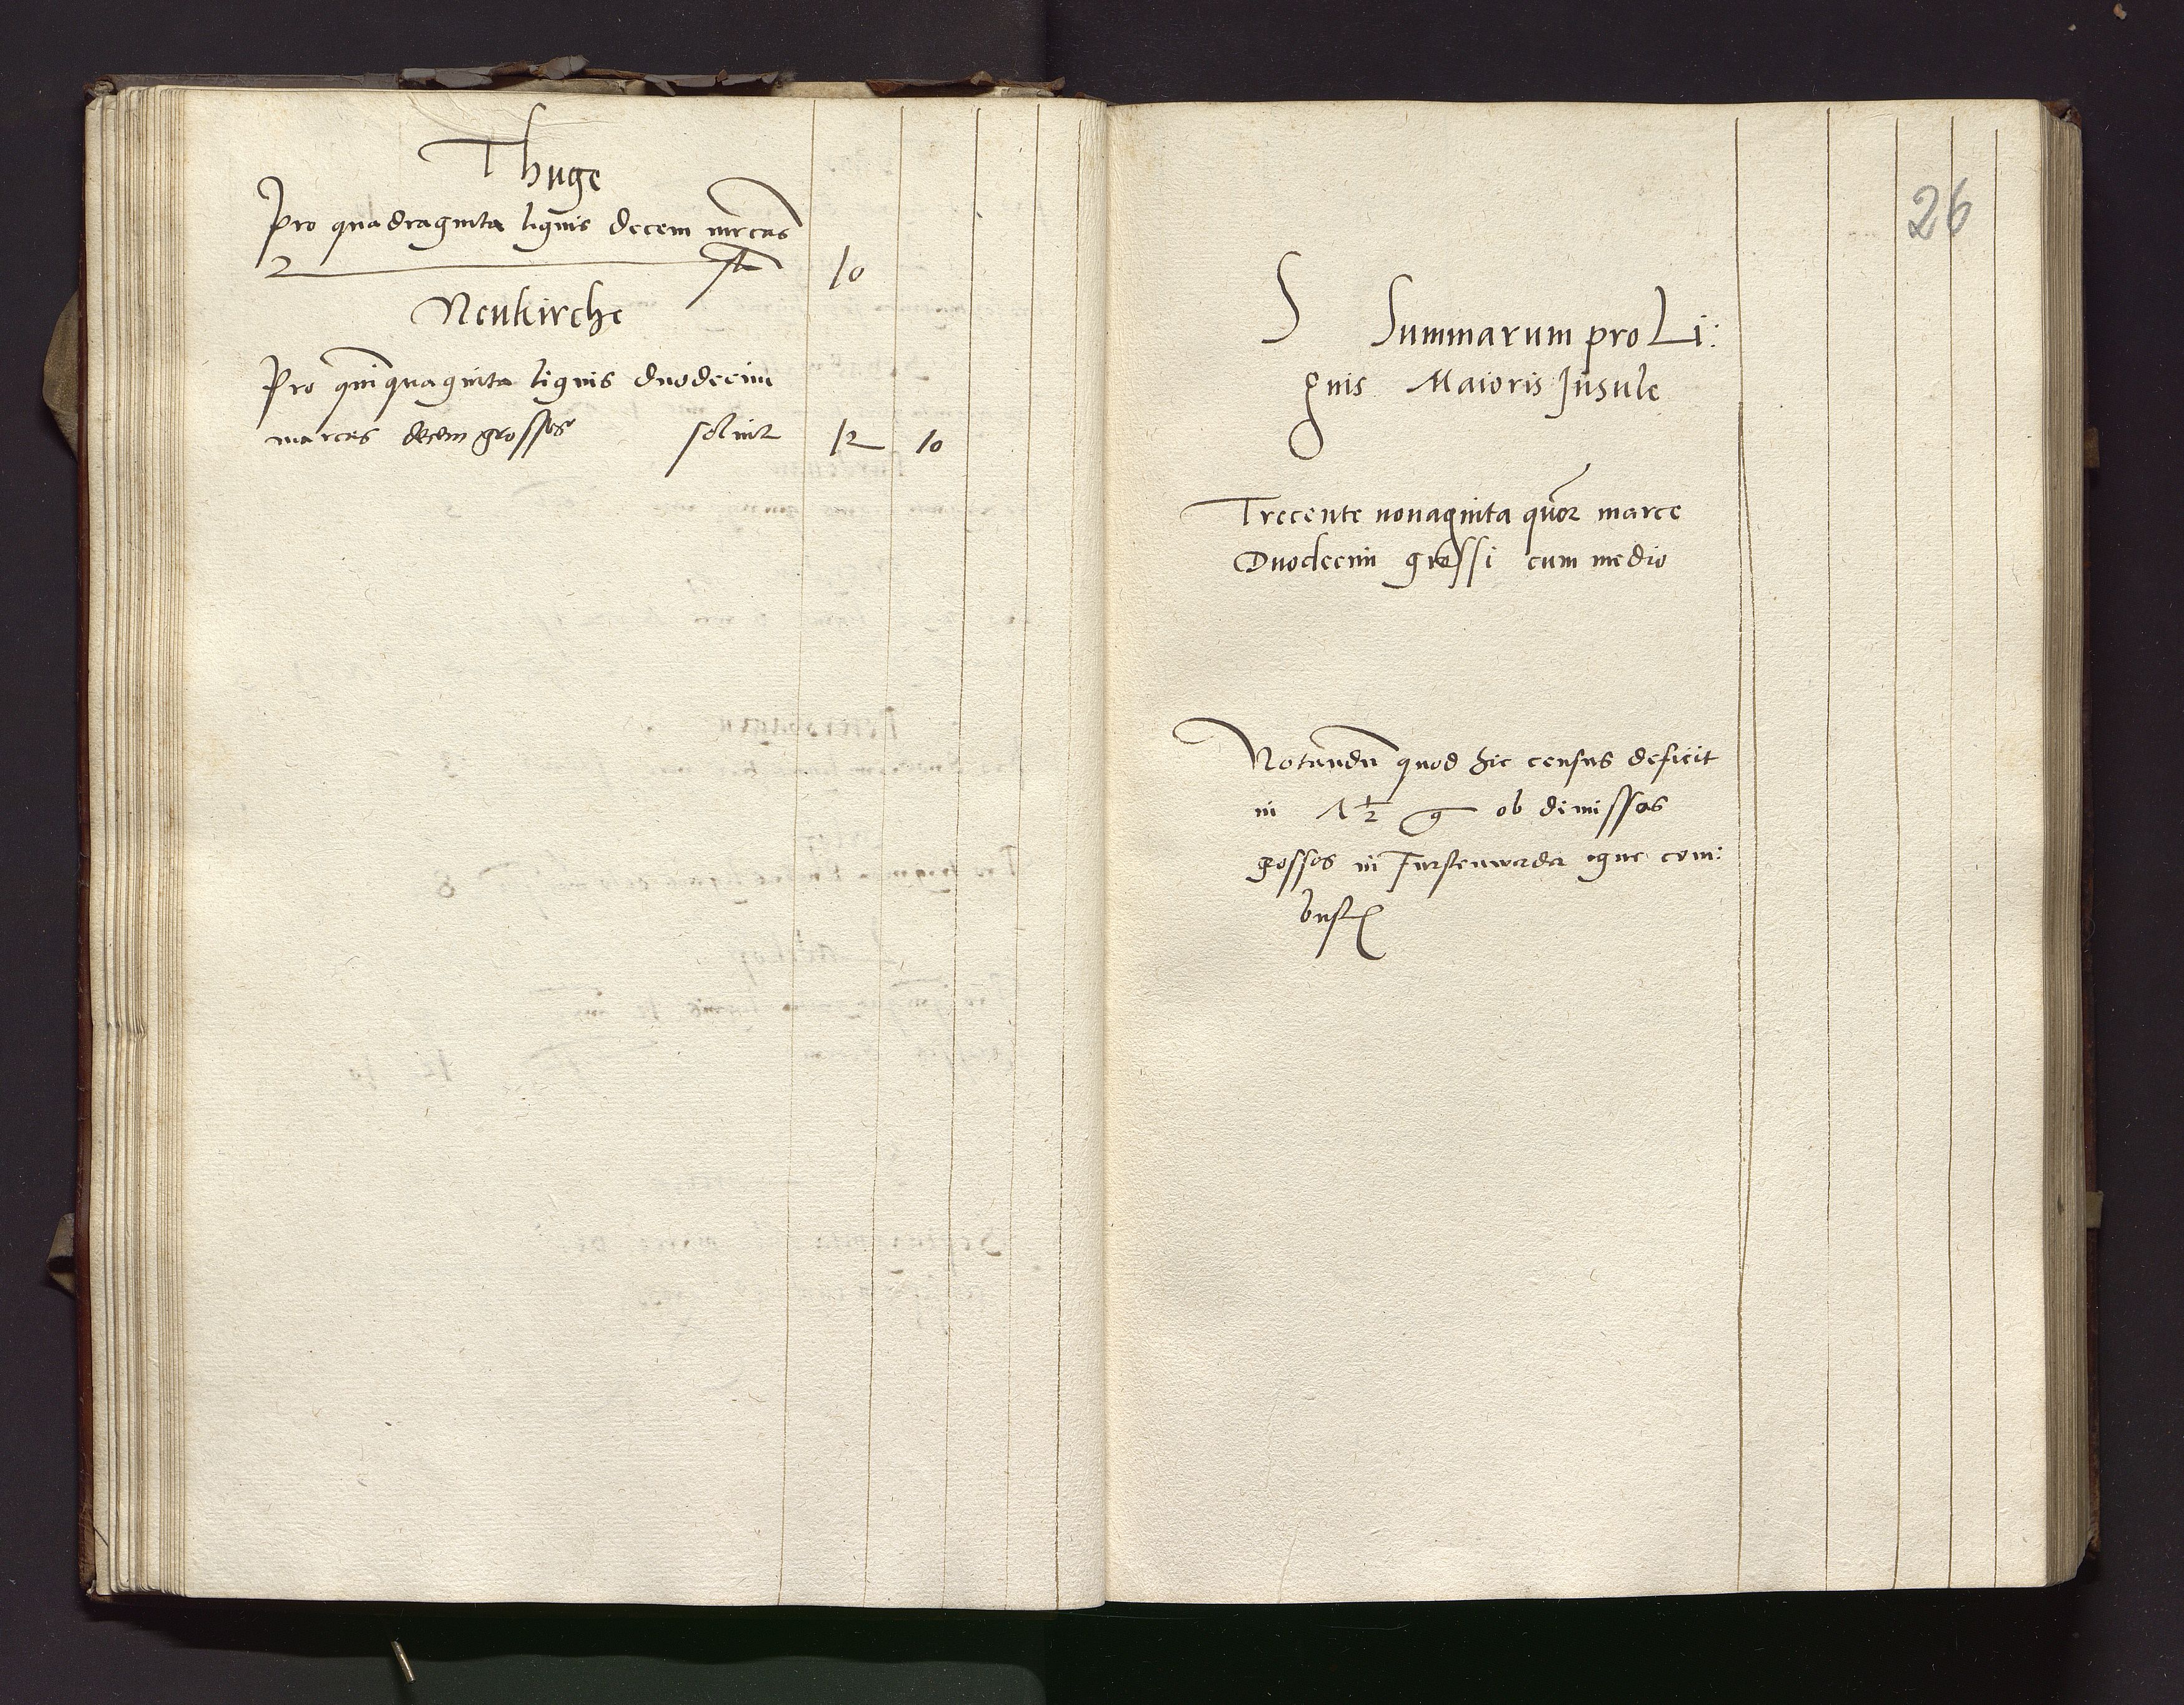 Thuge
Pro quadraginta lignis decem mrcas
10
Neukirche
Pro quinquaginta lignis duodecim
marcas decem grossos soluit 12 10
26
S Summarum pro Li:
gnis Maioris Insule
Trecente nonaginta quor marce
Duodecim grossi cum medio
Notandu quod hic census deficit
in 1½ g ob dimissos
gossos in Furstenwarda igne com:
bust